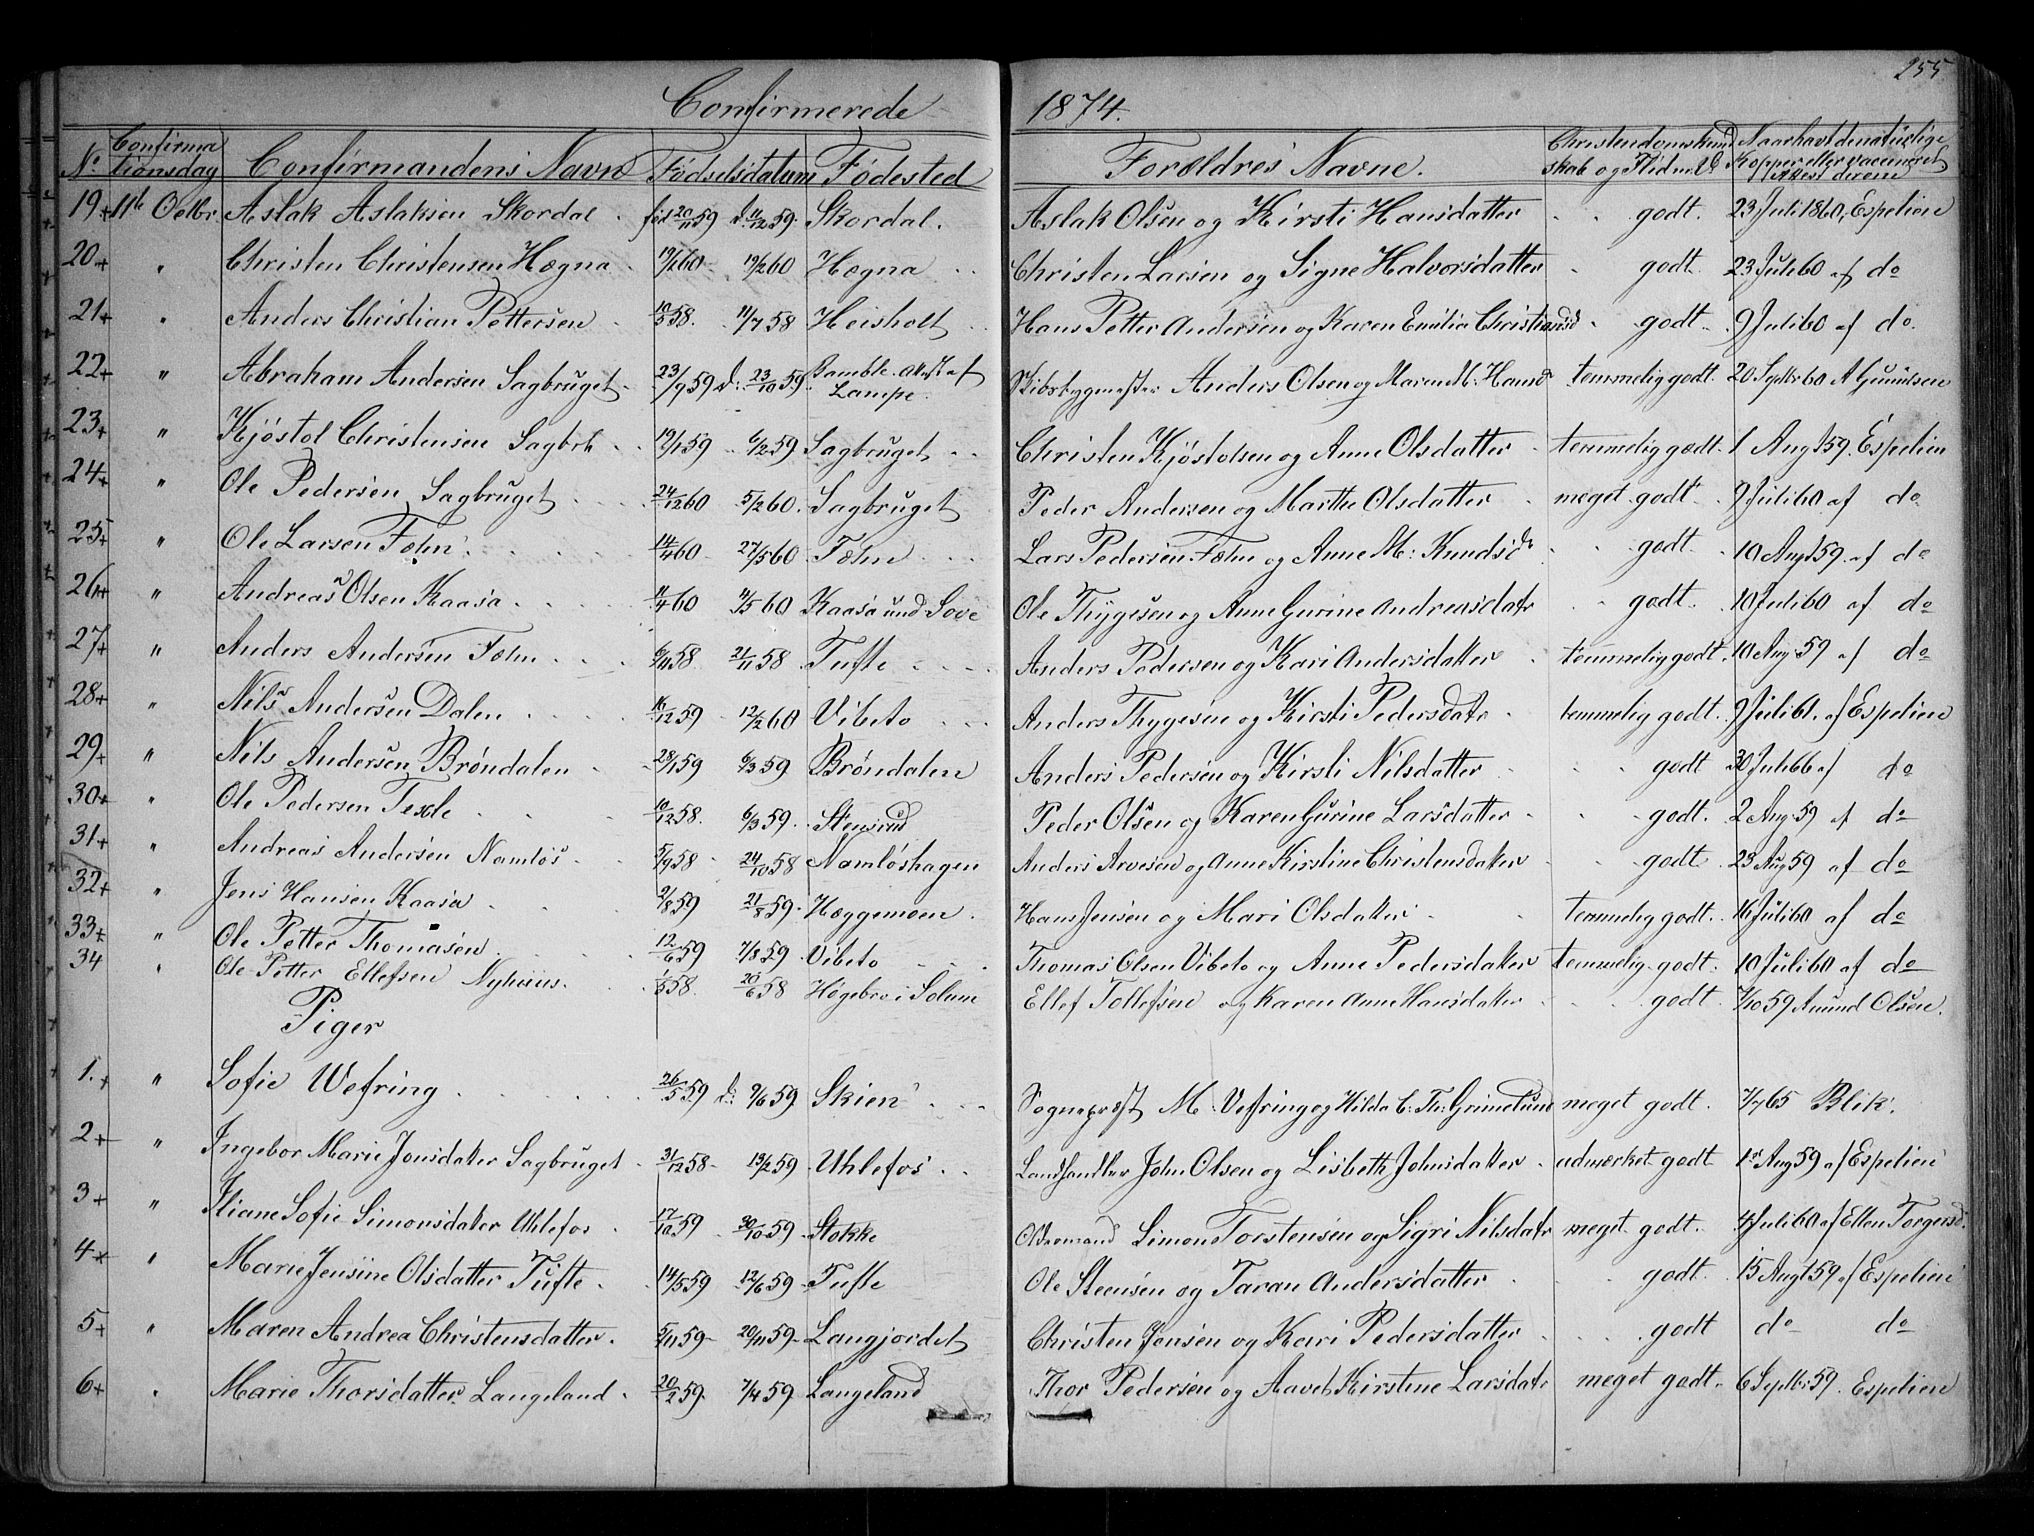 255
Confirmerede 1874.
No Confirmationsdag Confirmandens Navn Fødselsdatum Fødested Forældres Navne. Christendomskundskab og Flid m. V. Naar havt de naturlige Kopper eller vaccineret
19+ 11te Octbr. Aslak Aslaksen Skordal fød 20/11 59 d. 11/12 59. Skordal. Aslak Olsen og Kirsti Hansdatter godt. 23 Juli 1860, Espelien
20+ " Christen Christensen Hægna 17/1 60 19/2 60 Hægna Christen Larsen og Signe Halvorsdatter godt. 23 Juli 60 af do
21+ " Anders Christian Pettersen 10/5 58. 11/7 58 Heisholt Hans Petter Andersen og Karen Emilia godt. 9 Juli 60 af do.
22+ " Abraham Andersen Sagbruget 23/9 59 d: 23/10 59. Bamble. Attest af Lampe. Skibsbygmester Anders Olsen og Maren M: Hansd temmelig godt. 20 Septbr 60 A Gunulsen
23+ " Kjøstol Christensen Sagbrk 19/1 59 6/2 59 Sagbruget Christen Kjøstolsen og Anne Olsdatter temmelig godt. 1 Aug 59. Espelien
24+ " Ole Pedersen Sagbruget 24/12 60 5/2 60. Sagbruget Peder Andersen og Marthe Olsdatter meget godt. 9 Juli 60 af do
25+ " Ole Larsen Fæhn 14/4 60 27/5 60 Fæhn Lars Pedersen Fæhn og Anne M: Knudsdr godt. 10 Aug 59. af do
26+ " Andreas Olsen Kaasa 11/4 60 11/5 60 Kaasa und Sove Ole Thygesen og Anne Gurine Andreasdatr godt. 10 Juli 60 af do
27+ " Anders Andersen Fæhn 6/11 58 21/11 58 Tufte Anders Pedersen og Kari Andersdatter temmelig godt. 10 Aug 59 af do
28+ " Nils Andersen Dalen 16/12 59 12/2 60 Vibeto Anders Thygesen og Kirsti Pedersdatr temmelig godt. 9 Juli 61. af Espelien
29+ " Nils Andersen Brøndalen 28/1 59 6/3 59 Brøndalen Anders Pedersen og Kirsti Nilsdatter godt 30 Juli 66 af do
30+ " Ole Pedersen Texle 10/12 58. 6/3 59. Stensrud Peder Olsen og Karen Gurine Larsdatter godt. 2 Aug 59 af do
31+ " Andreas Andersen Namløs 5/9 58 24/10 58 Namløshagen Anders Arvesen og Anne Kirstine Christensdatter godt 23 Aug 59 af do
32+ " Jens Hansen Kaasa 2/8 59 21/8 59. Hæggemoen. Hans Jensen og Mari Olsdatter temmelig godt. 16 Juli 60 af do
33+ " Ole Petter Thomasen 12/6 59 7/8 59 Vibeto Thomas Olsen Vibeto og Anne Pedersdatter temmelig godt. 10 Juli 60 af do
34 " Ole Petter Ellefsen Nyhuus. 1/5 58. 20/6 58 Høgebro i Solum Ellef Tollefsen og Karen Anne Hansdatter godt 7/10 59 Amund Olsen.
Piger
1.+ " Sofie Wefring 26/5 59 d: 9/6 59 Skien Sogneprest M. Vefring og Hilda C: Th: Grimelund meget godt. 7/7 65 Blik.
2+ " Ingebor Marie Jonsdatter Sagbruget 31/12 58 13/2 59 Uhlefos Landhandler John Olsen og Lisbeth Johnsdatter udmærket godt 1ste Aug 59 af Espelien
3+ " Iliane Sofie Simonsdatter Uhlefos 17/10 59 30/10 59 Stokke Oldermand Simon Torstensen og Sigri Nilsdatr meget godt. 4 Juli 60 af Ellen Torgersd.
4+ " Marie Jensine Olsdatter Tufte 14/5 59 12/6 59 Tufte Ole Steensen og Taran Andersdatter godt. 15 Aug 59 af Espelien
5+ " Maren Andrea Christensdatter. 5/11 59 20/11 59 Langjordet Christen Jensen og Kari Pedersdatter godt do do
6+ " Marie Thorsdatter Langeland 20/2 59. 7/4 59 Langeland Thor Pedersen og Aavet Kirstine Larsdatr meget godt. 6 Septbr: 59. Espelien